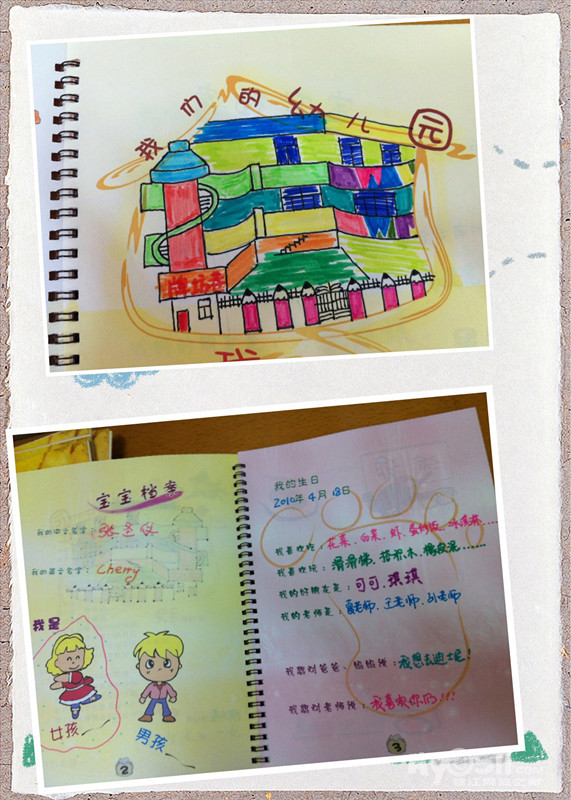 我们的幼儿园
宝宝档案
我的中文名字:
我的英文名字: Cherry
我是
女孩
男孩
2
我的生日
2010年4月18日
我喜欢吃:花菜、白菜、虾、蛋炒饭、冰淇淋……
我喜欢玩:滑滑梯、搭积木、橡皮泥……
我的好朋友是:可可、琪琪
我的老师是:夏老师、王老师、孙老师
我想对爸爸、妈妈说:我想去迪士尼!
我想对老师说:我喜欢你们!!!
3